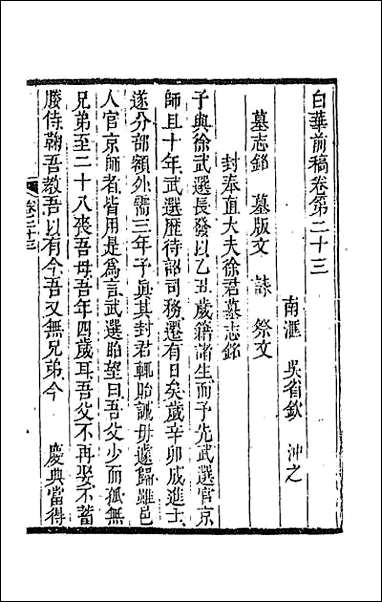 白華前稿卷第二十三
南滙 吳省欽 沖之
墓志銘 墓版文 誄 祭文
封奉直大夫徐君墓志銘
予與徐武選長發以乙丑歲籍諸生而予先武選官京
師且十年武選歷待詔司務遷有日矣歲辛卯成進士
遂分部額外需三年予與其封君輒貽誠毋遽歸雖邑
人官京師者皆用是爲言武選眙望曰吾父少而孤無
兄弟至二十八喪吾母吾年四歲耳吾父不再娶不蓄
媵侍鞠吾教吾以有今吾又無兄弟今 慶典當得
卷二十三